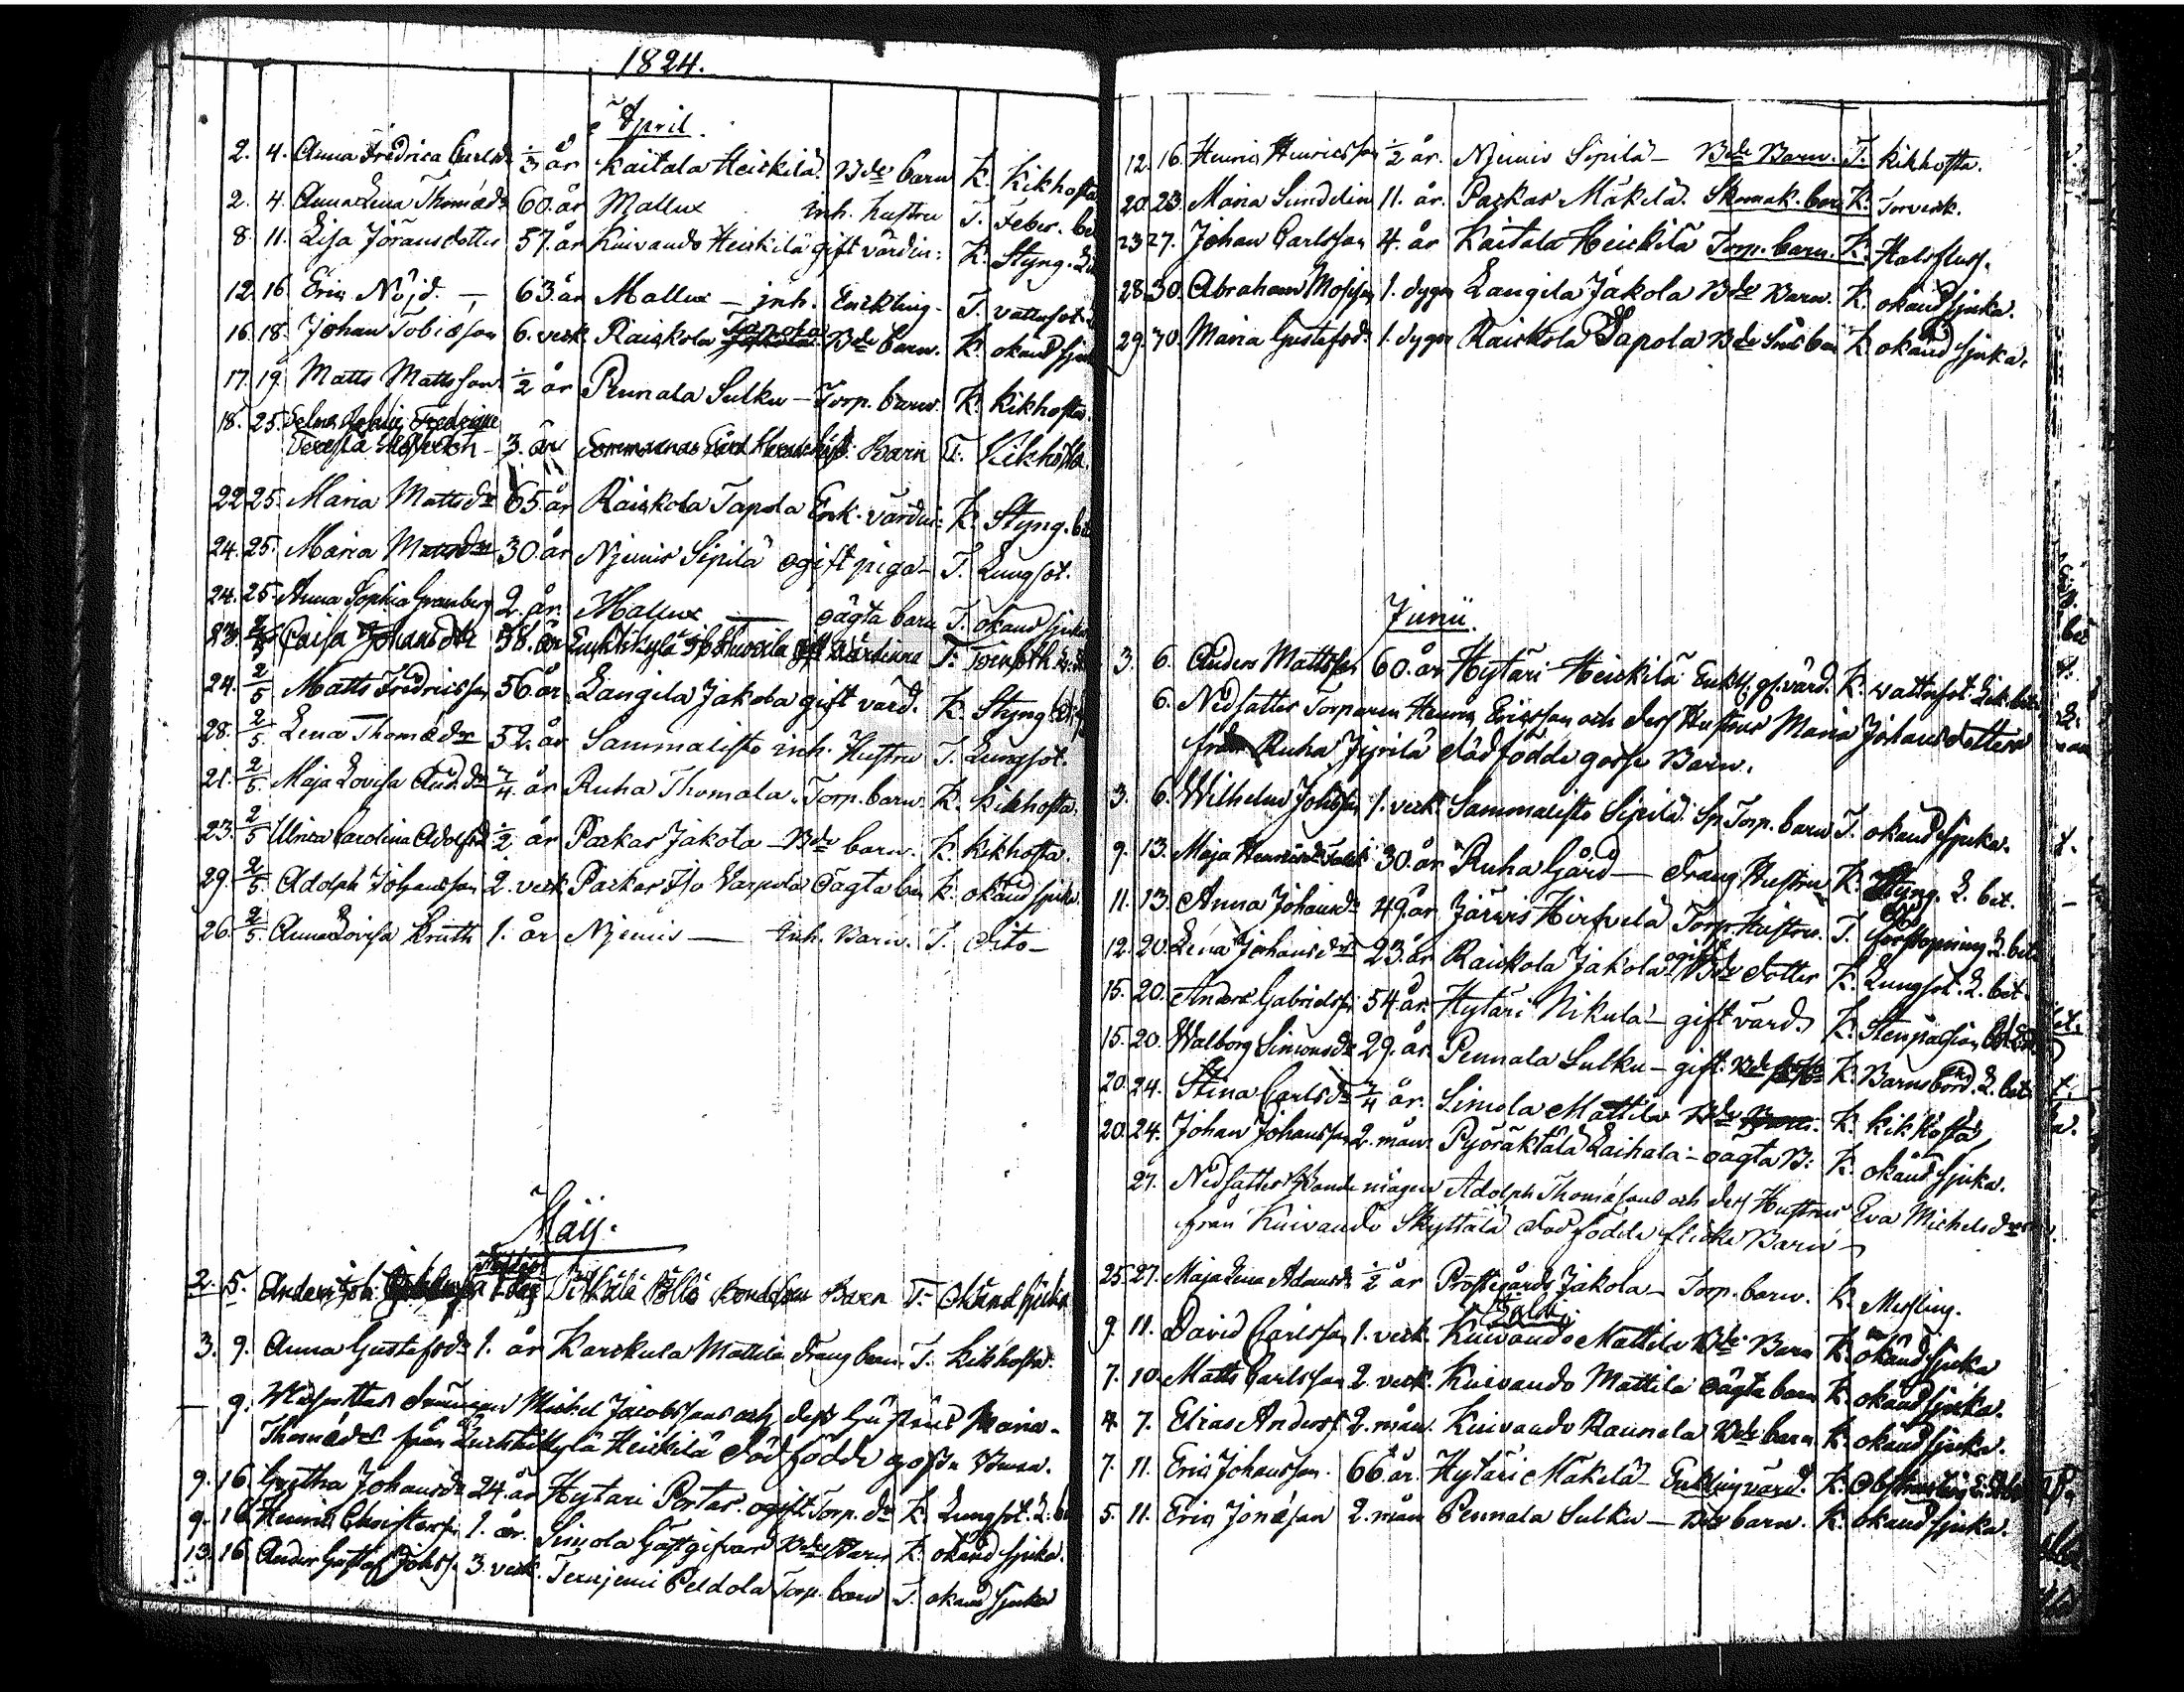 1824.
April.
2. 4. Anna Fredrica Carlsdr 1/3 år Kaitala Heickilä Bde barn K. Kikhosta
2. 4. Anna Lena Thomædr 60. år Mallux inh. hustru T. Feber.
8. 11. Lisa Jöransdotter 57. år Kuivando Heickilä gift värdin: K. Styng.
12. 16 Eric Nöjd. — 63. år Mallux — inh. Enckling. T. vattusot.
16. 18. Johan Tobiæson 6. veck Raiskola Tapola Bde barn. K. okänd sjuk
17. 19. Matts Mattsson 1/2 år Pennala Sulku — Torp. barn. K. Kikhosta.
18. 25. Fredrique
3. år Barn T. Kikhosta.
22. 25. Maria Mattsdr 65. år Raiskola Tapola Enk. värdin: K. Styng.
24. 25. Maria 30. år Njemis Sipilä ogift piga — T. Lungsot.
24. 25. Anna Sophia Granberg 2. år. Mallux — oägta barn T. okänd sjuka
23. Caisa Johansdtr 58. år värdinna T.
24. 2/5 Matts Fredricsson 56. år Langila Jakola gift värd. K. Styng
28. 2/5. Lena Thomædr 52. år Sammalisto inh. Hustru T. Lungsot.
21. 2/5. Maja Lovisa And.dr 3/4 år Ruha Thomala. Torp. barn. K. Kikhosta.
23. 2/5 Ulrica Carolina Adolfsd 1/2 år Parkar Jakola — Bde barn. K. Kikhosta.
29. 2/5. Adolph Johansson 2. veck Parkar Iso Varpula Oägta barn K. okänd sjuka.
26. 2/5. Anna Lovisa Knuth 1. år Njemis — Inh. Barn. T. Dito —
Maij.
2. 5. Pöllö Barn T. Okänd sjuka
3. 9. Anna Gustafsdr 1. år Karkula Mattila dräng barn. T. Kikhosta.
— 9. Nedsattes drängen Michel Jacobssons och dess hustrus Maria
Thomædrs från Heickilä död födde gosse
9. 16. Gretha Johansdr 24. år Hytari Portar. ogift Torp. dr K. Lungsot.
9. 16 Henric Christersson 1. år. Simola Gästgifvar Bde Barn K. okänd sjuka.
13. 16 Ander Gustaf Johss. 3. veck. Terrjemi Peldola Torp. barn T. okänd sjuka
12. 16. Henric Henricsson 1/2 år. Njemis Sipilä — Bde Barn. T. Kikhosta.
20. 23. Maria Sunddin 11. år. Parkar Mäkilä. Skomak. barn K. Torverk.
23 27. Johan Carlsson 4. år Kaitala Heickilä Torp. barn. K. Halsfluss.
28. 30. Abraham Mosisson 1. dygn Langila Jakola Bde Barn. K. okänd sjuka.
29. 30. Maria Gustafsd. 1. dygn Raiskola Tapola Bde Sons barn K okänd sjuka.
Junii.
3. 6. Anders Mattsson 60. år Hytäri Heickilä Enkl. gl. värd. K. vattusot.
6. Nedsattes Torparen Henric Ericsson och dess Hustrus Maria Johansdotters
från Ruha Jiprilä död födde gosse Barn.
3. 6. Wilhelm Johsson 1. veck. Sammalisto Sipilä. Sp. Torp. barn T. okänd sjuka.
9. 13. Maja Henricsdr 30. år Ruha Gård — Drang Hustru K. Styng. L. bet.
11. 13. Anna Johansdr 49. år Järvis Hirfvelä Torp. Hustru. T. förstopning L. bet.
12. 20. Lena Johansdr 23. år Raiskola Jakola ogift Bde dotter K. Lungsot. L. bet.
15. 20. Anders Gabrielsson 54. år. Hytäri Nikula — gift värd. K. Stenpassion
15. 20. Walborg Simonsdr 29. år Pennala Sulku — gift. Bde K. Barnsbörd. L. bet.
20. 24. Stina Carlsdr 3/4 år. Simola Mattila Bde Barn. K. Kikhosta
20. 24. Johan Johansson 2. mån. Pyöräktälä Laihala — oägta B: K. okänd sjuka.
27. Nedsattes Bonde mågen Adolph Thomæsons och dess Hustrus Eva Michelsdrs
från Kuivando Skyttälä död födde flicko Barn —
25. 27. Maja Lena Adamsdr 1/2 år Prostgårds Jakola — Torp. barn. K. Messling.
9. 11. David Carlsson 1. veck. Kuivando Mattila Bde Barn K. okänd sjuka
7. 10. Matts Carlsson 2. veck. Kuivando Mattila oägta barn K. okänd sjuka.
4. 7. Elias Anderss. 2. mån. Kuivando Raunala Bde barn K. okänd sjuka.
7. 11. Eric Johansson. 66. år. Hytäri Mäkilä — Enkling värd. K.
5. 11. Eric Jonæson 2. mån Pennala Sulku — Bde barn. K. okänd sjuka.